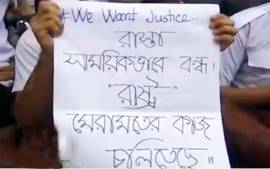 #We Want Justice
রাস্তা
সাময়িকভাবে বন্ধ।
রাষ্ট্র
মেরামতের কাজ
চলিতেছে॥